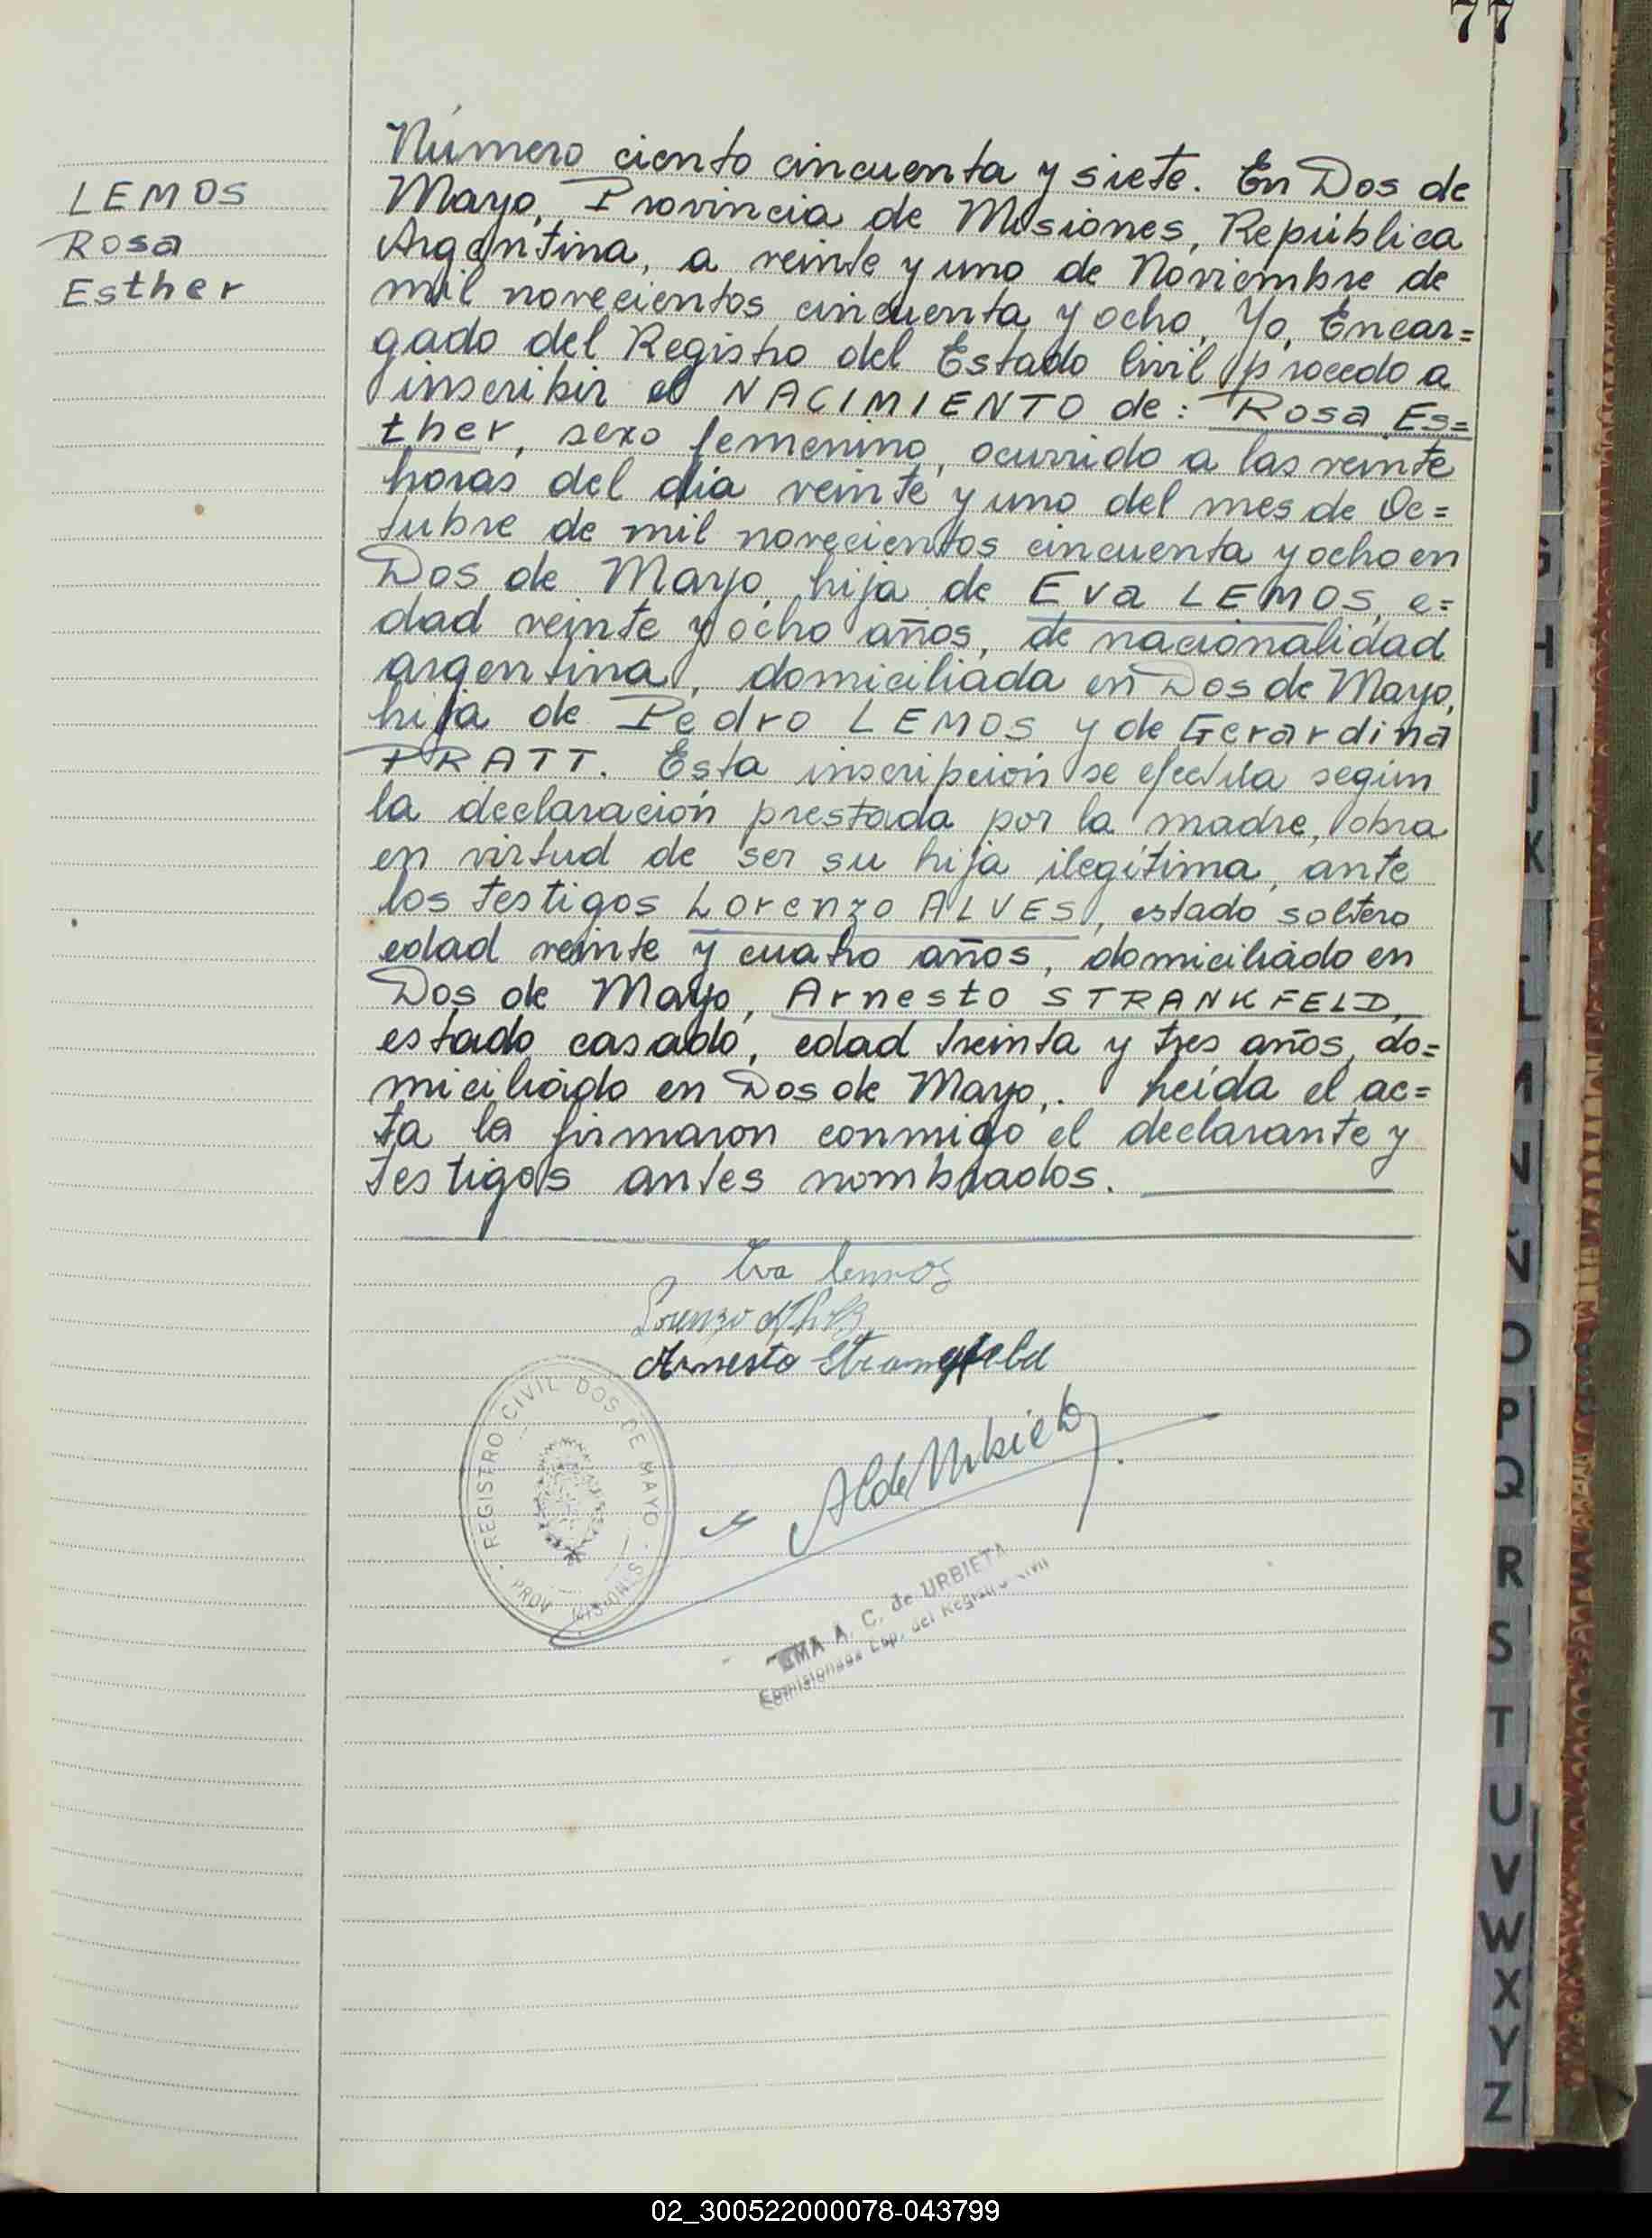 77
LEMOS
Rosa
Esther
Número ciento cincuenta y siete. En Dos de
Mayo, Provincia de Misiones, República
Argentina, a veinte y uno de Noviembre de
mil novecientos cincuenta y ocho, Yo, Encar=
gado del Registro del Estado Civil procedo a
inscribir el NACIMIENTO de: Rosa Es=
ther, sexo femenino, ocurrido a las veinte
horas del día veinte y uno del mes de Oc=
tubre de mil novecientos cincuenta y ocho en
Dos de Mayo, hija de Eva LEMOS, e=
dad veinte y ocho años, de nacionalidad
argentina, domiciliada en Dos de Mayo,
hija de Pedro LEMOS y de Gerardina
PRATT. Esta inscripción se efectúa según
la declaración prestada por la madre, obra
en virtud de ser su hija ilegítima, ante
los testigos Lorenzo ALVES, estado soltero
edad veinte y cuatro años, domiciliado en
Dos de Mayo, Arnesto STRANKFELD,
estado casado, edad treinta y tres años, do=
miciliado en Dos de Mayo,. Leída el ac=
ta la firmaron conmigo el declarante y
testigos antes nombrados.
Eva Lemos
Lorenzo
Arnesto
REGISTRO CIVIL DOS DE MAYO
PROV. MISIONES
A. C. de URBIETA
del Registro Civil
G
H
I
J
K
L
M
N
Ñ
O
P
Q
R
S
T
U
V
W
X
Y
Z
02_300522000078-043799